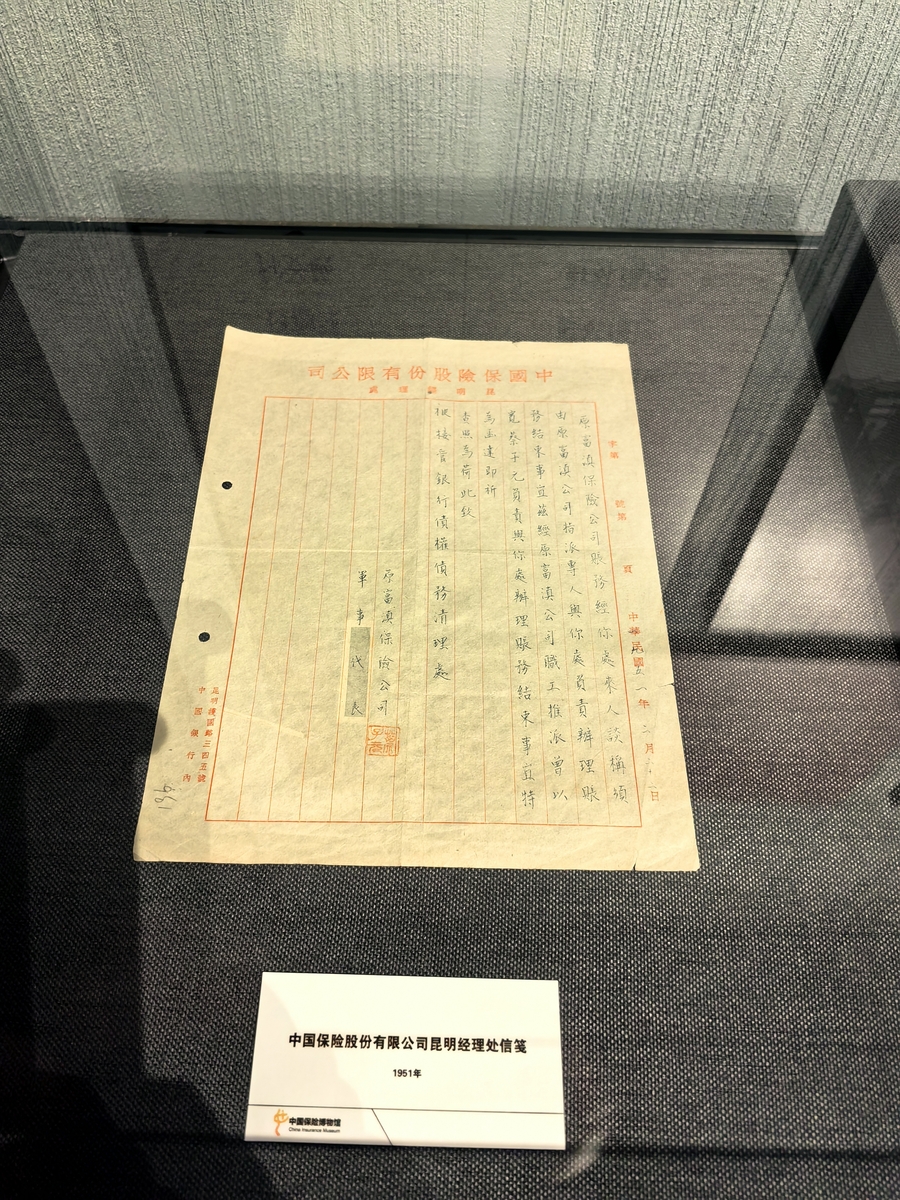 中國保險股份有限公司
昆明經理處
字第 號第 頁
中華民國 一年 二月 日
原富滇保險公司賬務經你處來人談稱須
由原富滇公司指派專人與你處負責辦理賬
務結束事宜茲經原富滇公司職工推派曾以
寬蔡子元負責與你處辦理賬務結束事宜特
為函達即祈
查照為荷此致
被接管銀行債權債務清理處
原富滇保險公司
軍事代表
昆明護國路三四五號
中國銀行內
196
中国保险股份有限公司昆明经理处信笺
1951年
中国保险博物馆
China Insurance Museum